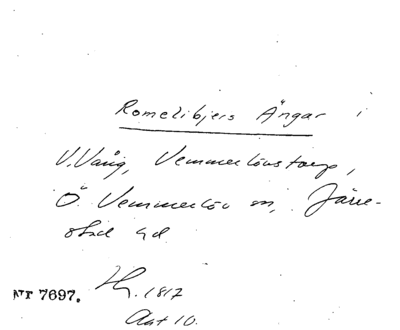 Romelibjers Ängar i
V. Vång, Vemmerlövstorp,
Ö. Vemmerlöv sn, Järre-
stad hd
Nr 7697.
1817
Akt 10.